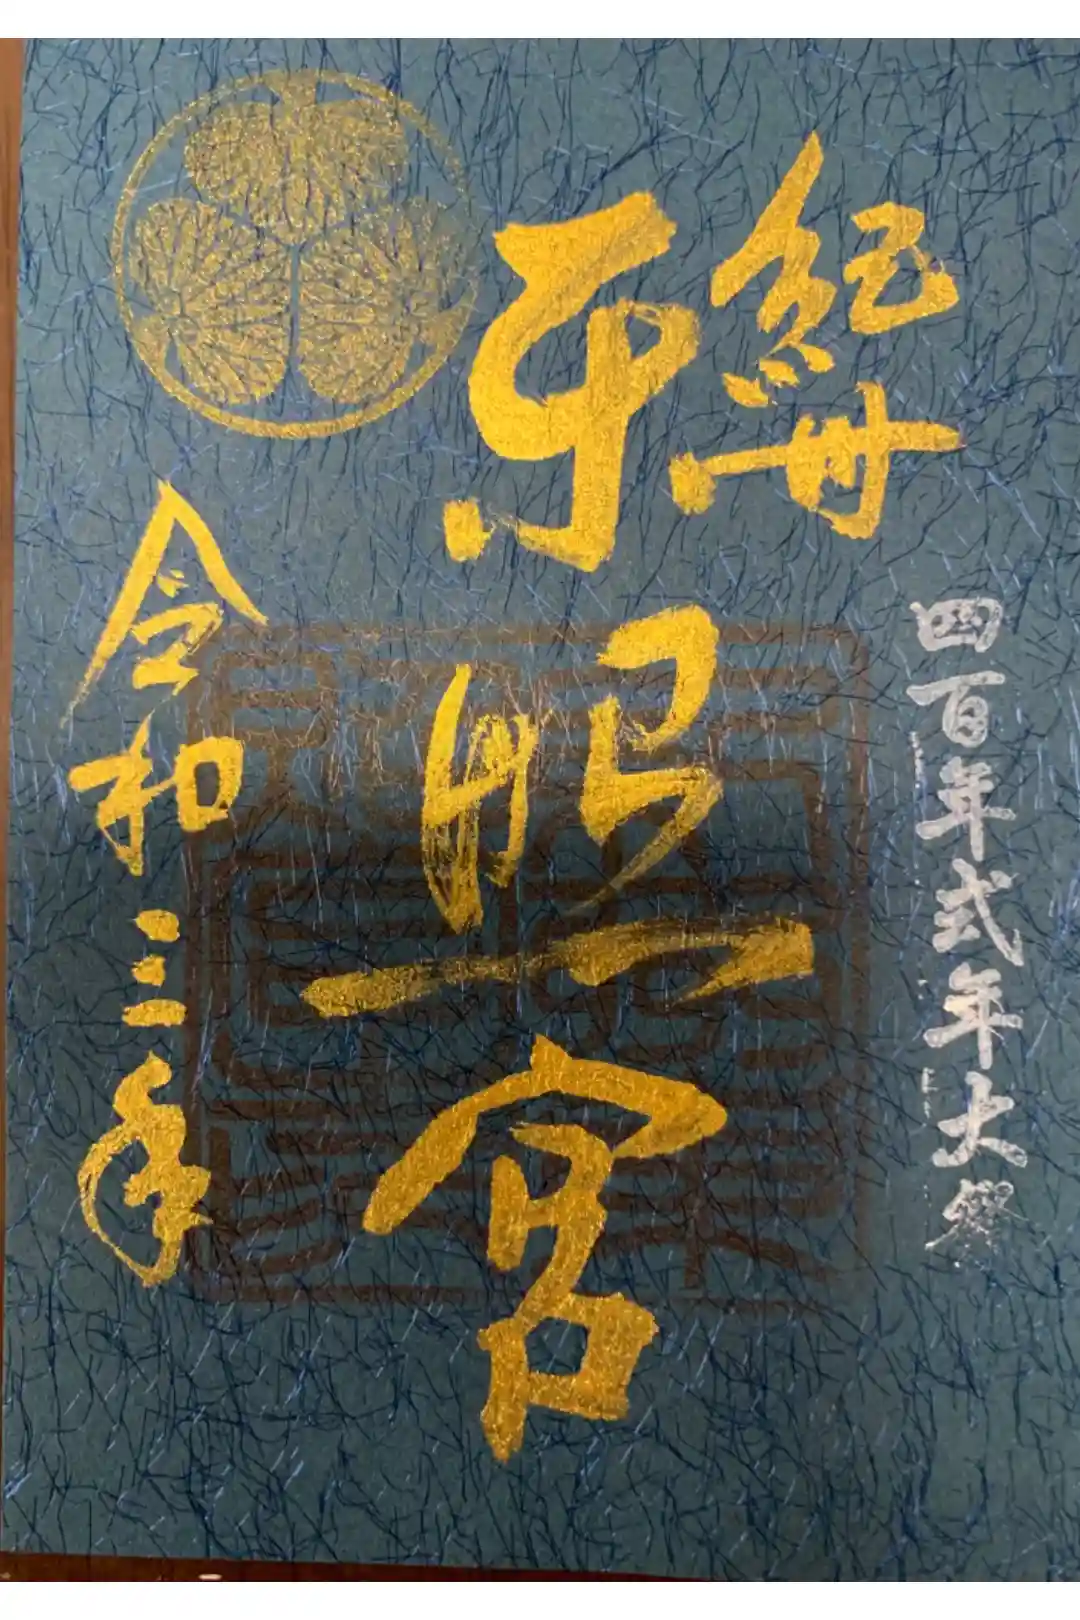 紀州
四百年式年大祭
東照宮
令和三年